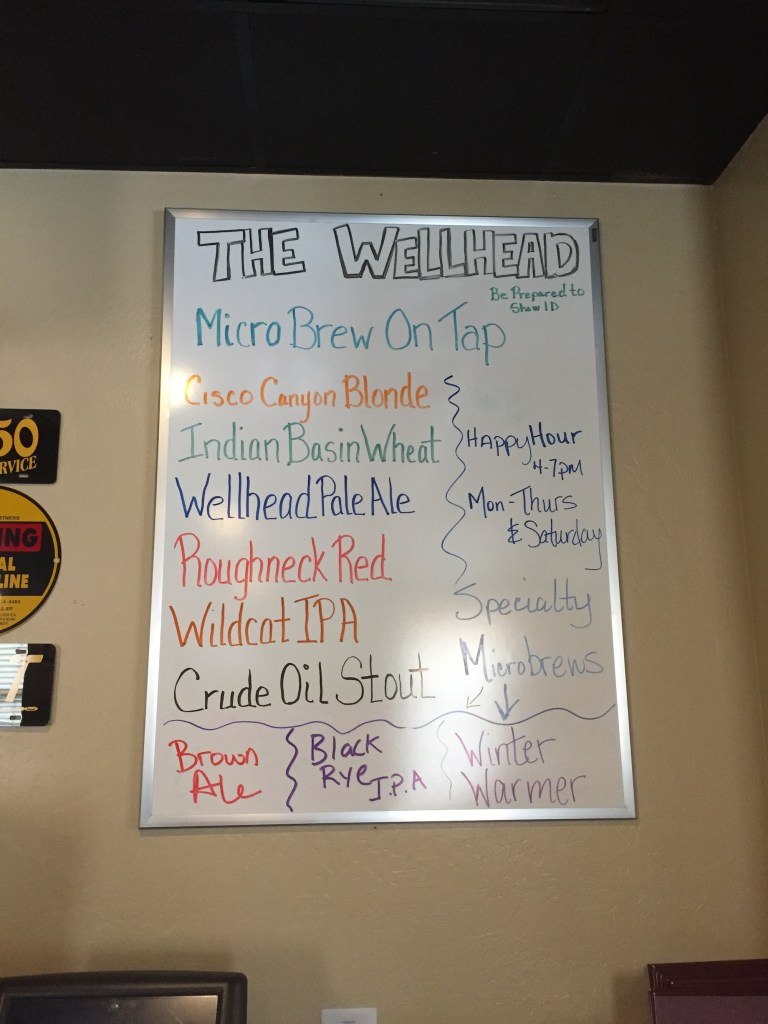 THE WELLHEAD
Be Prepared to
Show ID
Micro Brew On Tap
Cisco Canyon Blonde
Indian Basin Wheat
Wellhead Pale Ale
Roughneck Red
Wildcat IPA
Crude Oil Stout
Happy Hour
4-7pm
Mon-Thurs
& Saturday
Specialty
Microbrews
Brown
Ale
Black
Rye I.P.A
Winter
Warmer
50
RVICE
NG
AL
LINE